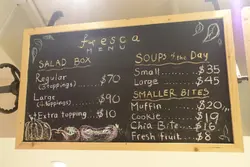 fresca
MENU
SALAD BOX
Regular $70
(5 toppings)
Large $90
(6 toppings)
Extra topping $10
SOUPS of the Day
Small $35
Large $45
SMALLER BITES
Muffin $20
Cookie $19
Chia Bite $16
Fresh fruit $8